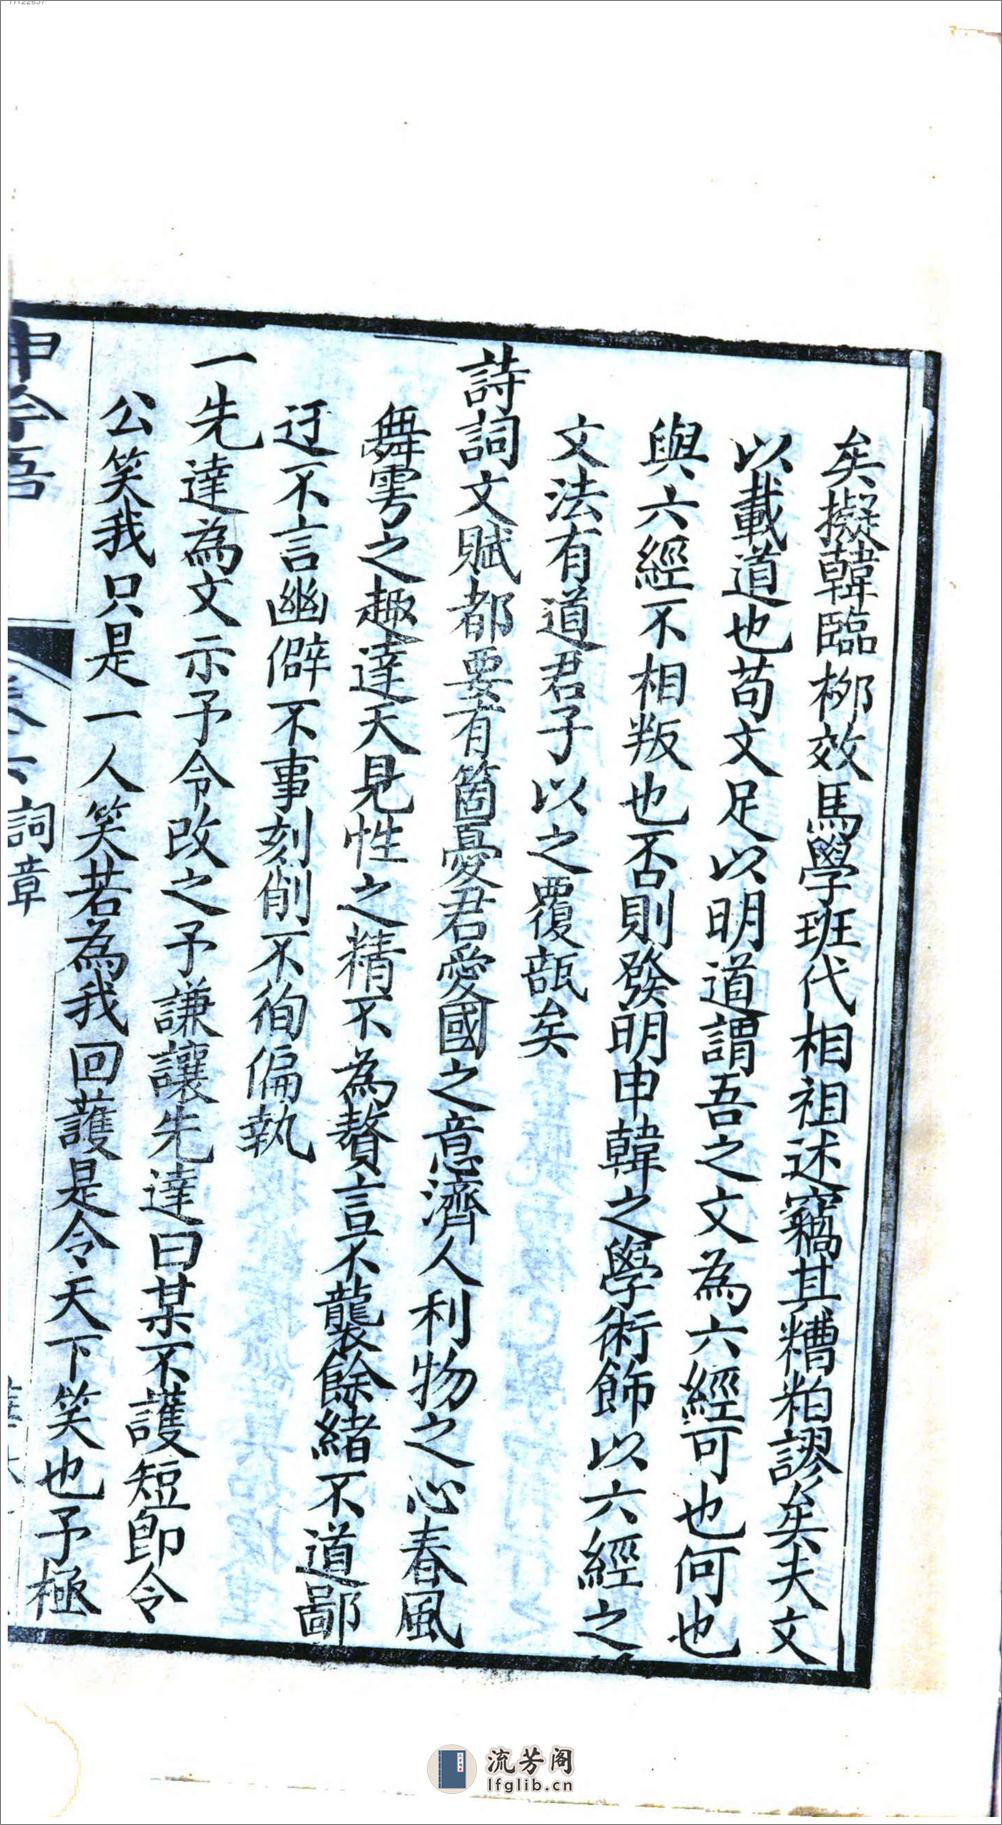 矣擬韓臨栁效馬學班代相祖述竊其糟粕謬矣夫文
以載道也苟文足以明道謂吾之文為六經可也何也
與六經不相叛也否則發明申韓之學術飾以六經之
文法有道君子以之覆瓿矣
詩詞文賦都要有箇憂君愛國之意濟人利物之心春風
舞雩之趣達天見性之精不為贅言不襲餘緒不道鄙
迂不言幽僻不事刻削不徇偏執
一先達為文示予令改之予謙讓先達曰某不護短即令
公笑我只是一人笑若為我回護是令天下笑也予極
呻吟語
卷六
詞章
流芳阁
lfglib.cn